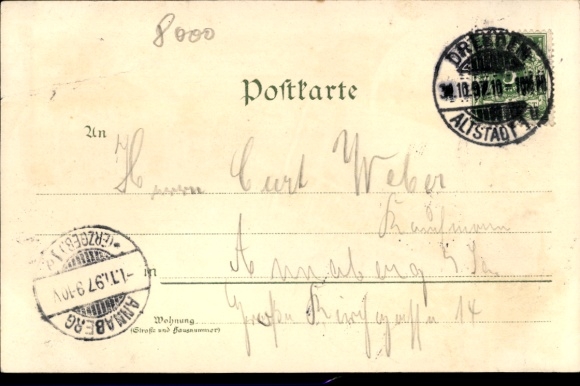 8000
DRESDEN
31.10.97.10-
ALTSTADT 1.
Postkarte
An
Herrn Curt Weber
Kaufmann
in Annaberg i/Sa
Wohnung Große Kirchgasse 14
(Straße und Hausnummer)
ANNABERG
-1.11.97.9-10V
*(ERZGEB.)*